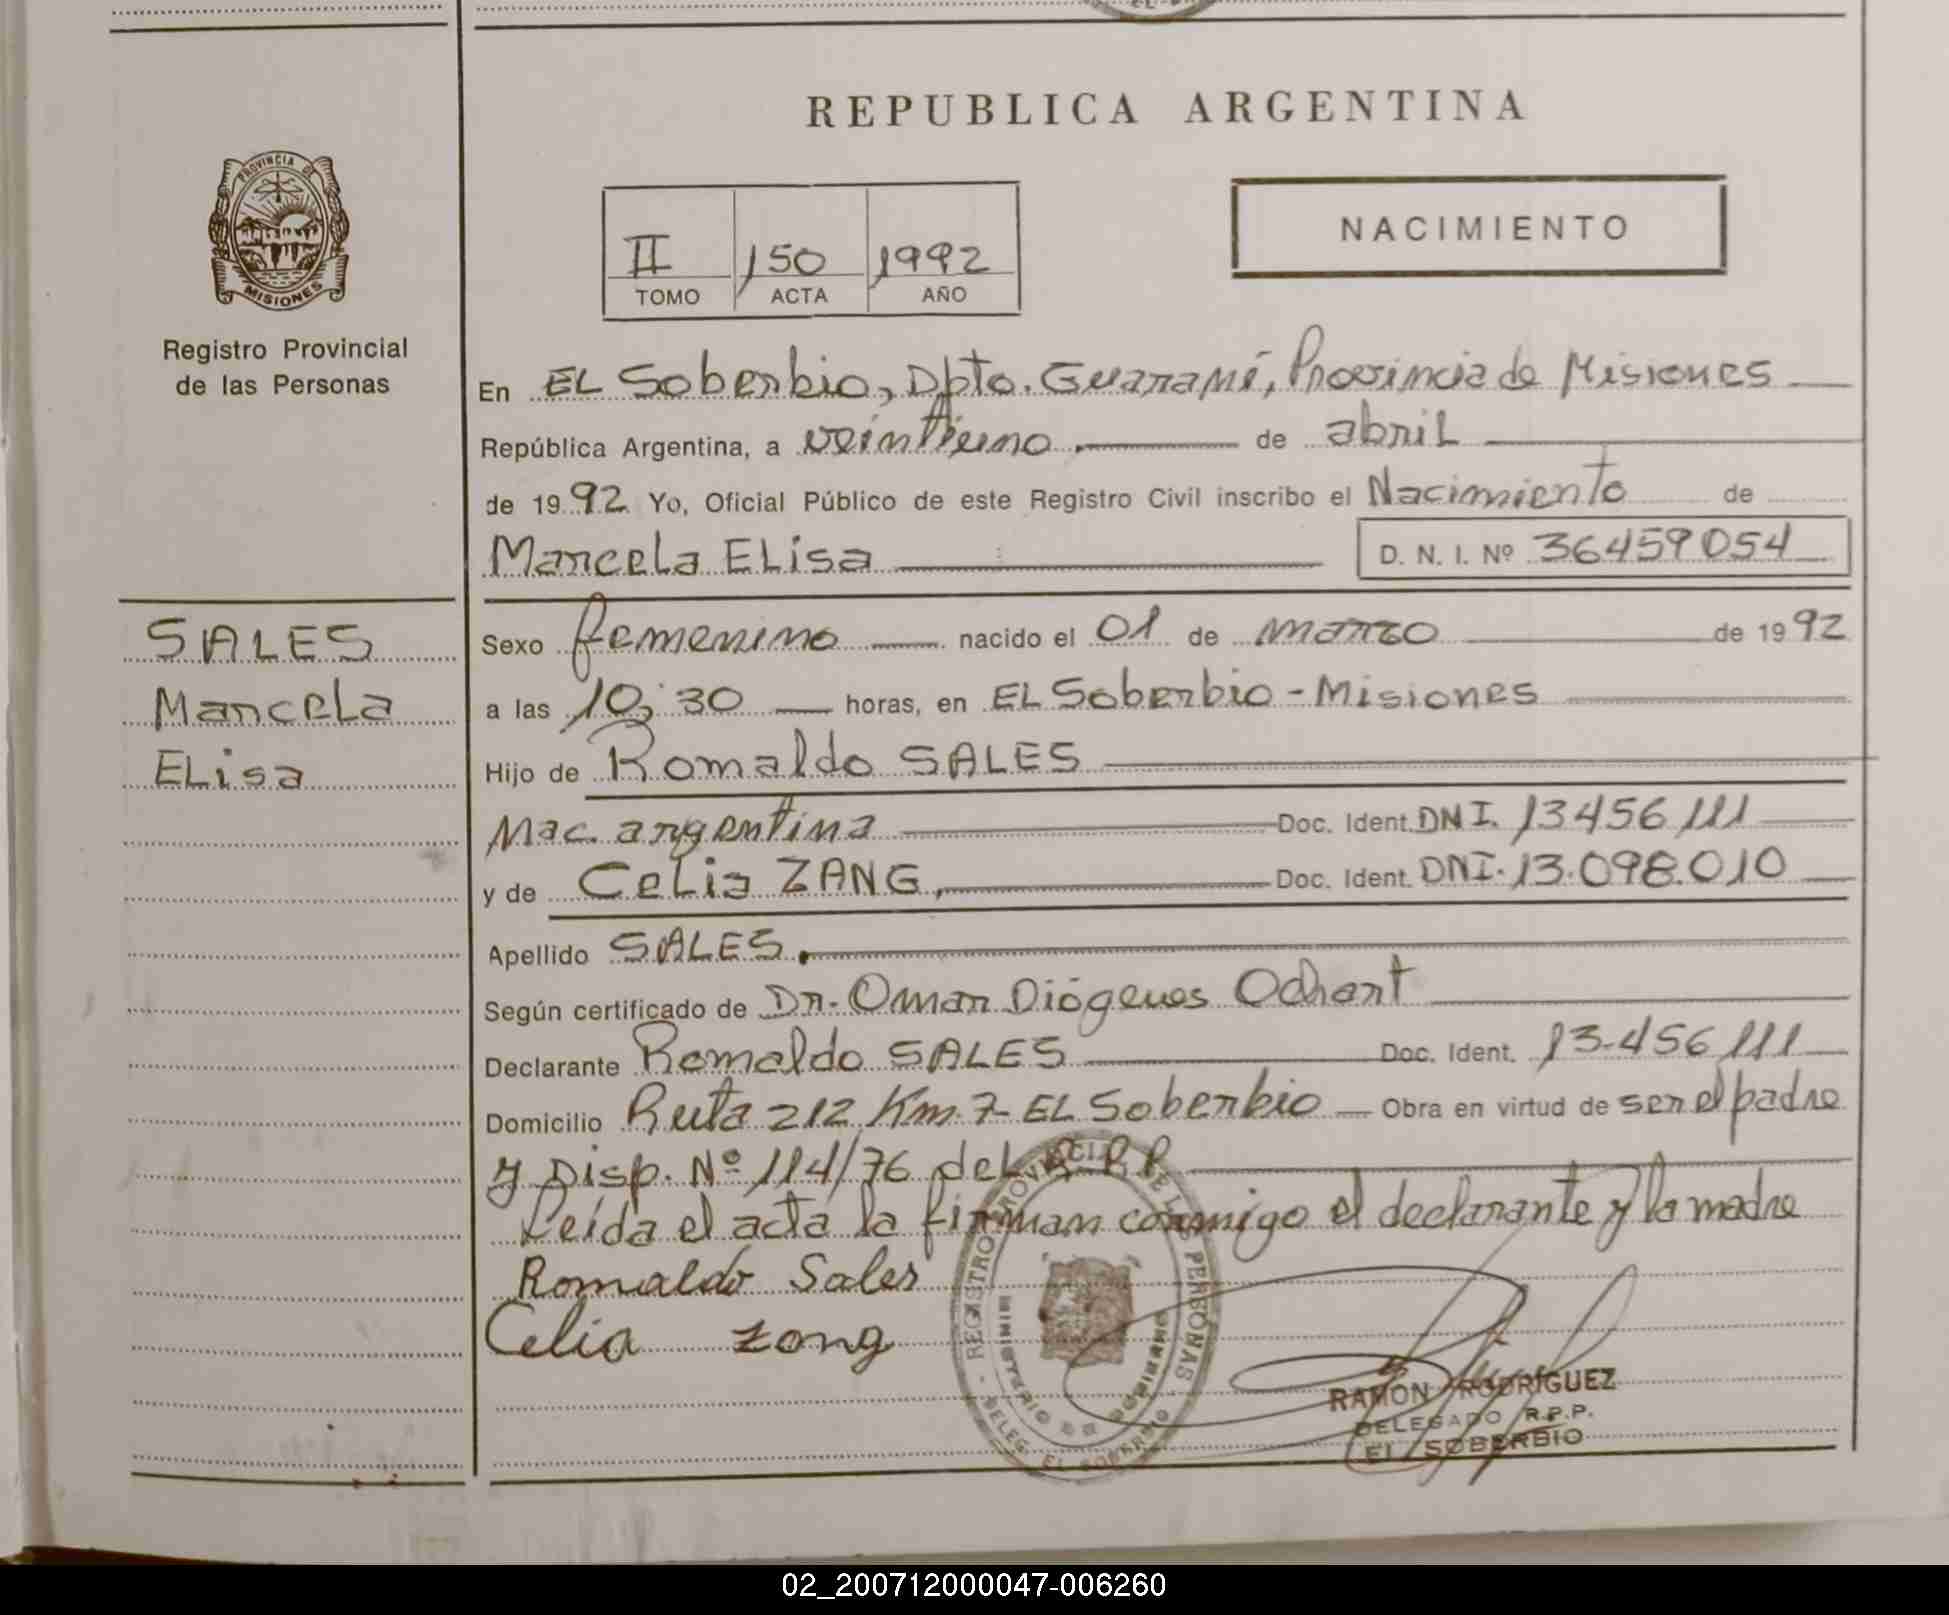 REPUBLICA ARGENTINA
PROVINCIA DE MISIONES
Registro Provincial
de las Personas
II 150 1992
TOMO ACTA AÑO
NACIMIENTO
En EL Soberbio, Dpto. Guaraní, Provincia de Misiones
República Argentina, a veintiuno de abril
de 1992 Yo, Oficial Público de este Registro Civil inscribo el Nacimiento de
Marcela ELisa D. N. I. Nº 36459054
SALES
Marcela
ELisa
Sexo femenino nacido el 01 de marzo de 1992
a las 10:30 horas, en EL Soberbio - Misiones
Hijo de Romaldo SALES
Nac. argentina Doc. Ident. DNI. 13456111
y de Celia ZANG, Doc. Ident. DNI. 13.098.010
Apellido SALES.
Según certificado de Dr. Omar Diógenes Ochart
Declarante Romaldo SALES Doc. Ident. 13.456111
Domicilio Ruta 212 Km. 7- EL Soberbio Obra en virtud de ser el padre
y Disp. Nº 114/76 del R.P.P.
Leída el acta la firman conmigo el declarante y la madre
Romaldo Sales
Celia Zang
REGISTRO PROVINCIAL DE LAS PERSONAS
MINISTERIO DE GOBIERNO
DELEG. EL SOBERBIO
RAMON RODRÍGUEZ
DELEGADO R.P.P.
EL SOBERBIO
02_200712000047-006260